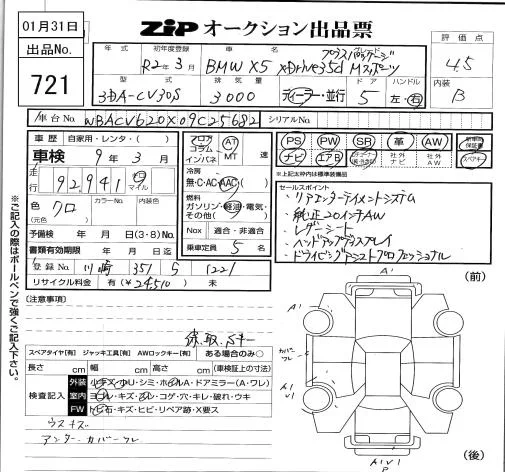 01月31日
出品No.
721
ZIP オークション出品票
年式 初年度登録 車名 グレード
R2年3月 BMW X5 xDrive35d Mスポーツ
プラスパッケージ
評価点
4.5
内装
B
型式 排気量 ドア ハンドル
3DA-CV30S 3000 ディーラー・並行 5 左・右
車台No. WBACV620X09C25682 シリアルNo.
車歴 自家用・レンタ・( )
車検 9年3月
走行 92,941 キロ マイル
色 クロ カラーNo. 内装色
(元色)
予備検 年 月 日(3・8)No.
書類有効期限 年 月 日迄
登録No. 川崎 351 S 1221
リサイクル料金 有(¥24510) 未
フロア コラム インパネ AT MT 速
冷房
無・C・AC・AAC
燃料
ガソリン・軽油・電気・その他( )
Nox 適合・非適合
乗車定員 5 名
PS PW SR 革 AW 新車時保証書
ナビ エアB 社外ナビ 社外AW スペアキー
*上記太枠内は標準装備品
セールスポイント
・リアエンターテイメントシステム
・純正20インチAW
・レザーシート
・ヘッドアップディスプレイ
・ドライビングアシストプロフェッショナル
※ご記入の際はボールペンで強くご記入下さい。
[注意事項]
保、取、Sキー
スペアタイヤ[有] ジャッキ工具[有] AWロックキー[有] ある場合のみ○
長さ cm 幅 cm 高さ cm (車検証上の寸法)
検査記入
外装 小キズ・小U・シミ・ホイルA・ドアミラー(A・ワレ)
室内 ヨゴレ・キズ・スレ・コゲ・穴・キレ・破れ・ウキ
FW トビ石・キズ・ヒビ・リペア跡・X要ス
ウスキズ
アンダーカバーワレ
(前)
A1
カバーワレ
A1
U1
A1U1
P
(後)